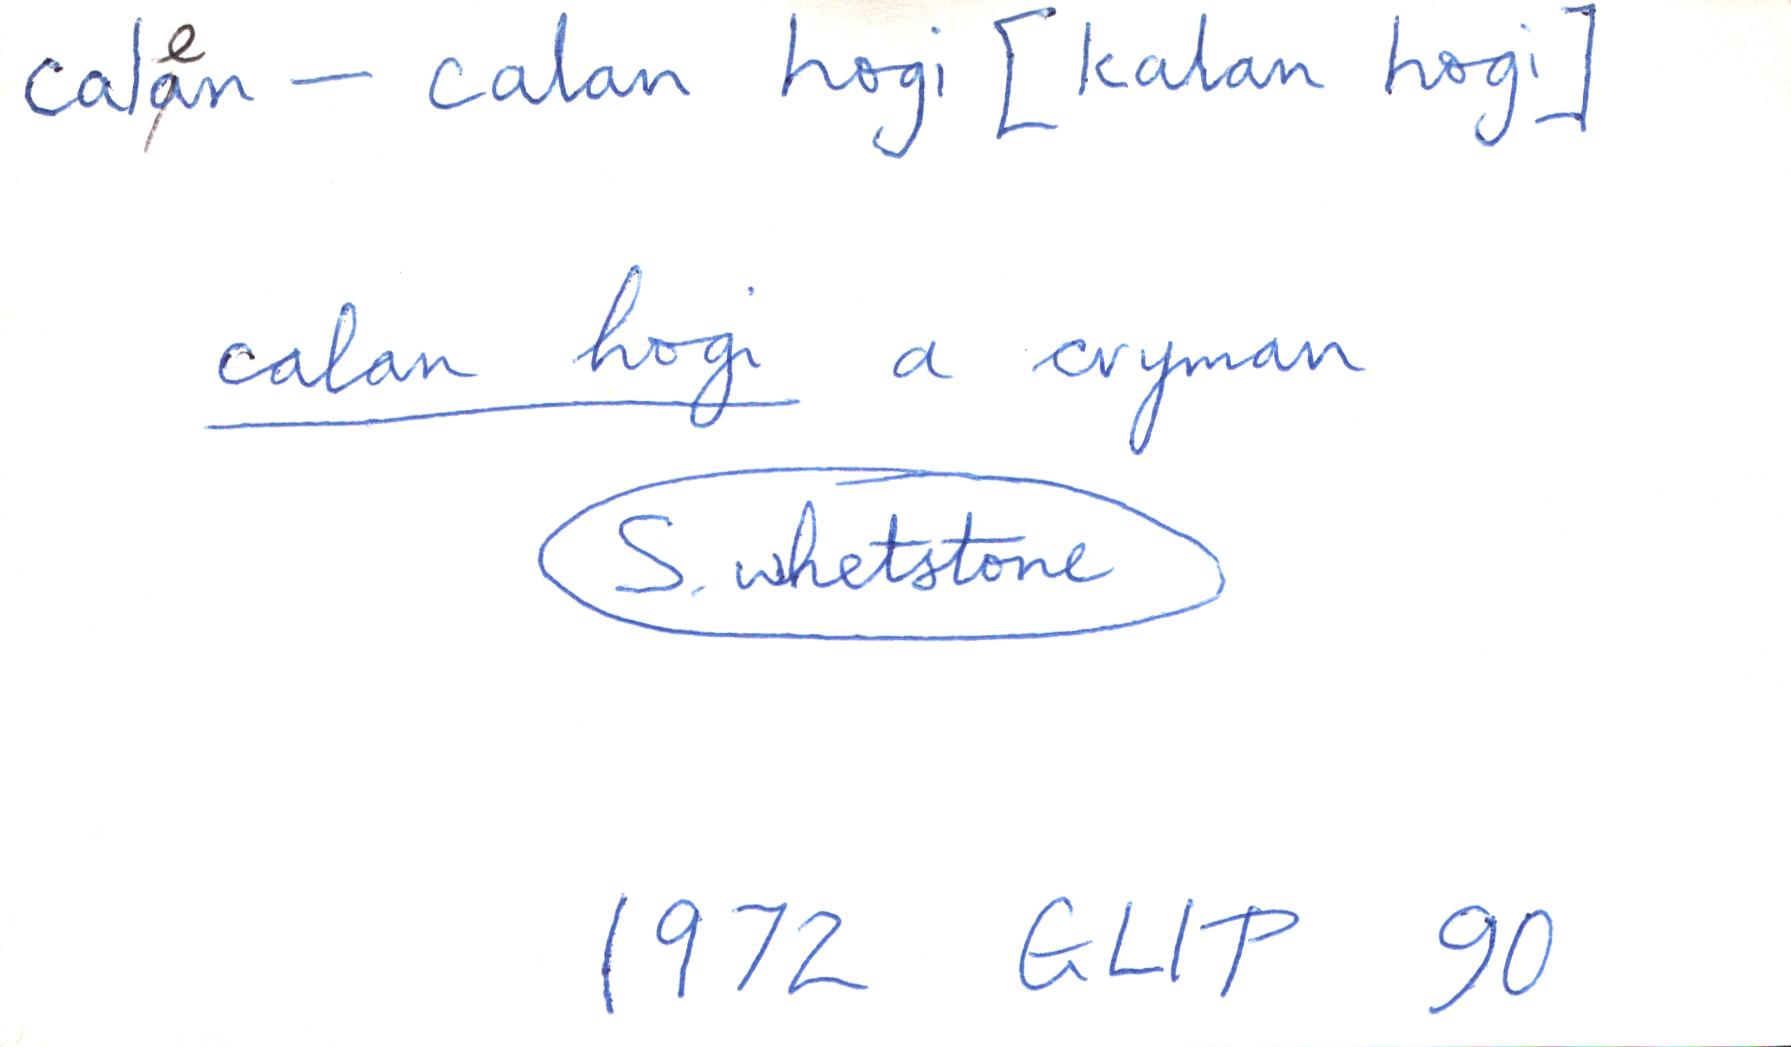 calen – calan hogi [kalan hogi]
calan hogi a cryman
S. whetstone
1972 GLIP 90